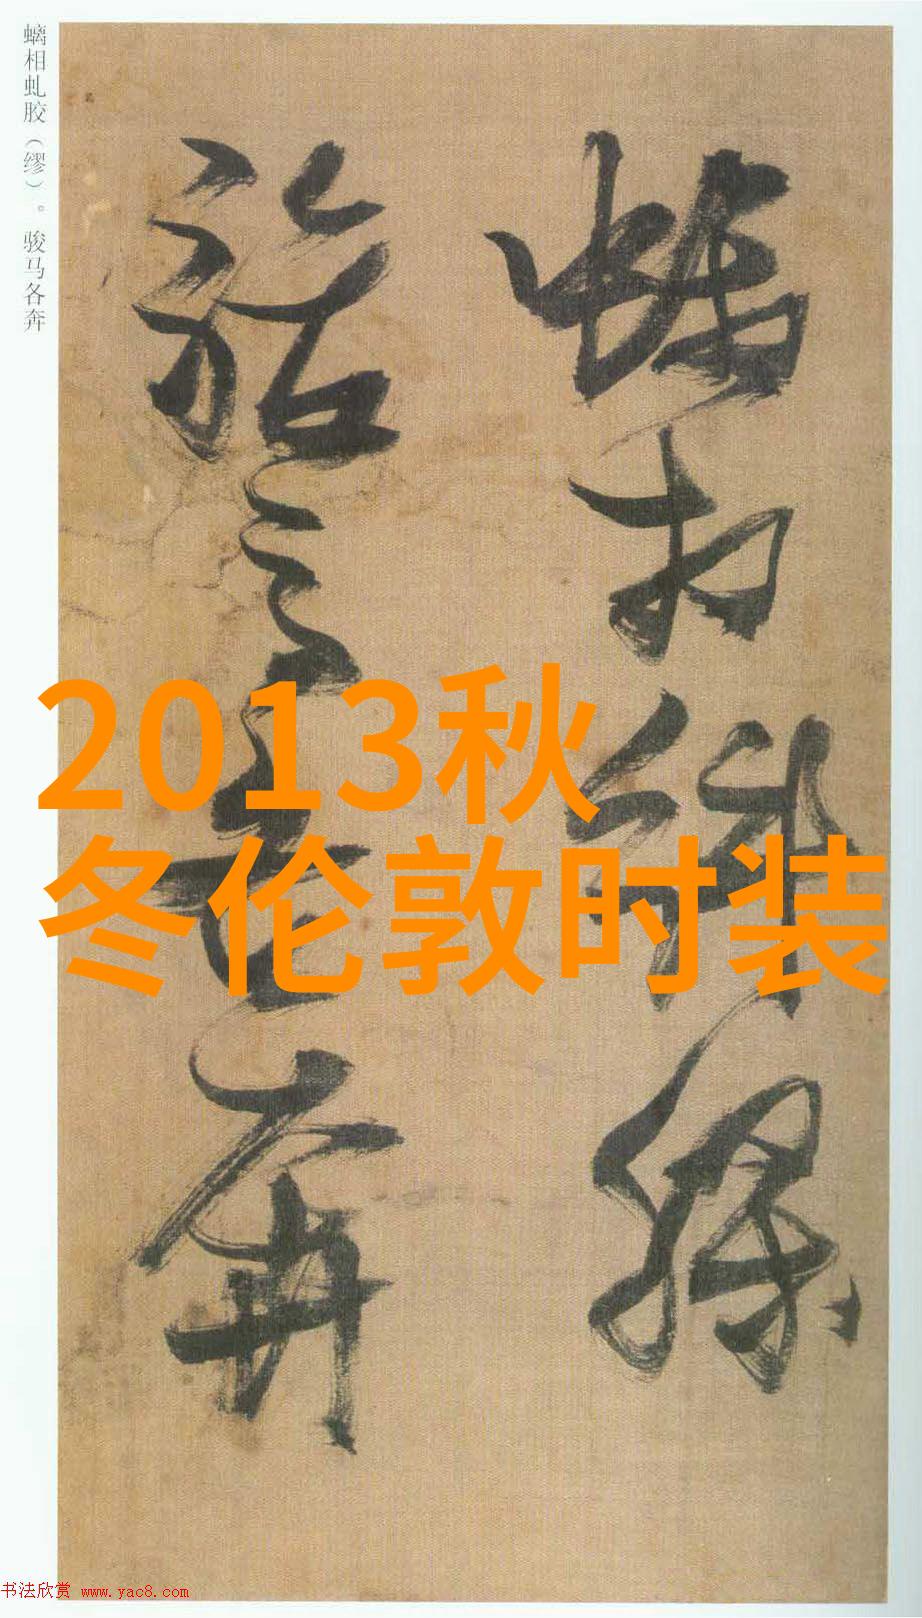 螭相虬胶（缪）。骏马各奔
螭相虬
缪
骏马各奔
2013秋
冬伦敦时装
书法欣赏 www.yac8.com